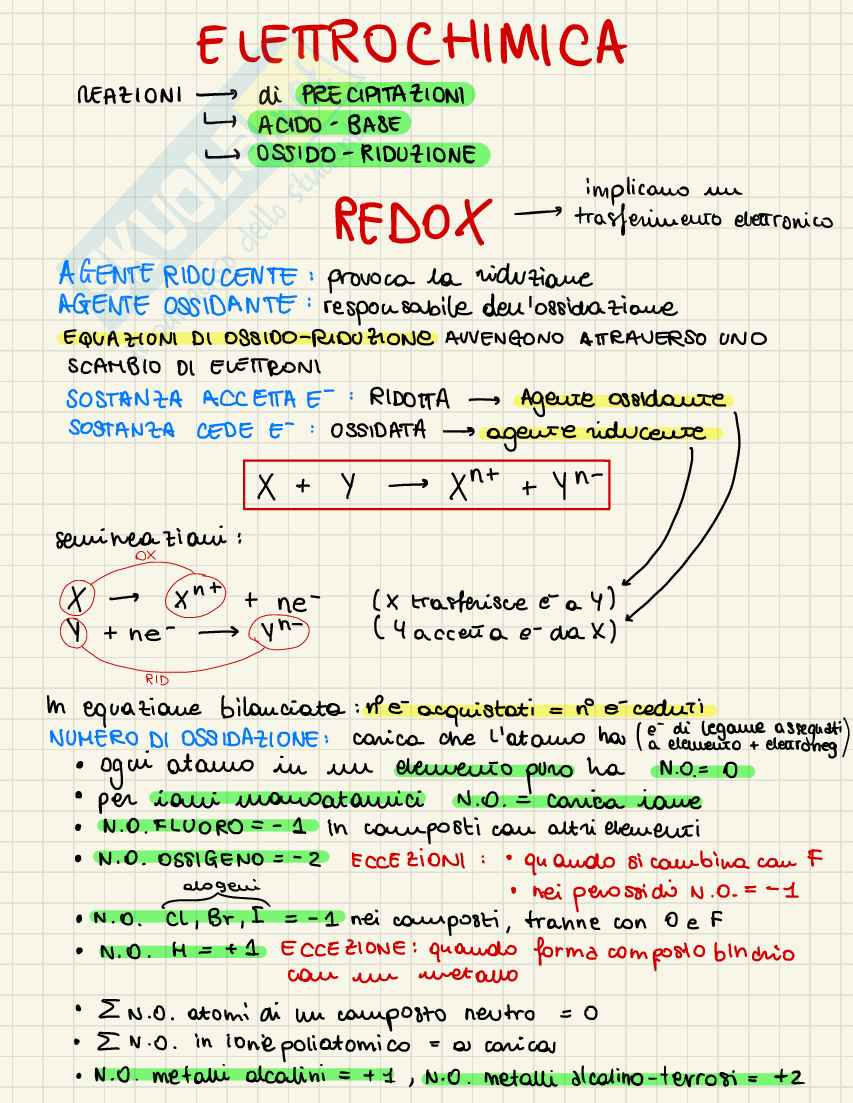 ELETTROCHIMICA
REAZIONI → di PRECIPITAZIONI
↳ ACIDO - BASE
↳ OSSIDO - RIDUZIONE
REDOX → implicano un
trasferimento elettronico
AGENTE RIDUCENTE : provoca la riduzione
AGENTE OSSIDANTE : responsabile dell'ossidazione
EQUAZIONI DI OSSIDO-RIDUZIONE AVVENGONO ATTRAVERSO UNO
SCAMBIO DI ELETTRONI
SOSTANZA ACCETTA E⁻ : RIDOTTA → Agente ossidante
SOSTANZA CEDE E⁻ : OSSIDATA → agente riducente
X + Y → Xⁿ⁺ + Yⁿ⁻
semireazioni :
OX
X → Xⁿ⁺ + ne⁻ (X trasferisce e⁻ a Y)
Y + ne⁻ → Yⁿ⁻ (Y accetta e⁻ da X)
RID
In equazione bilanciata : n° e⁻ acquistati = n° e⁻ ceduti
NUMERO DI OSSIDAZIONE : carica che l'atomo ha (e⁻ di legame assegnati
a elemento + elettroneg)
• ogni atomo in un elemento puro ha N.O. = 0
• per ioni monoatomici N.O. = carica ione
• N.O. FLUORO = - 1 in composti con altri elementi
• N.O. OSSIGENO = - 2 ECCEZIONI : • quando si combina con F
• nei perossidi N.O. = - 1
alogeni
• N.O. Cl, Br, I = -1 nei composti, tranne con O e F
• N.O. H = +1 ECCEZIONE : quando forma composto binario
con un metallo
• Σ N.O. atomi di un composto neutro = 0
• Σ N.O. in ione poliatomico = a carica
• N.O. metalli alcalini = +1 , N.O. metalli alcalino-terrosi = +2